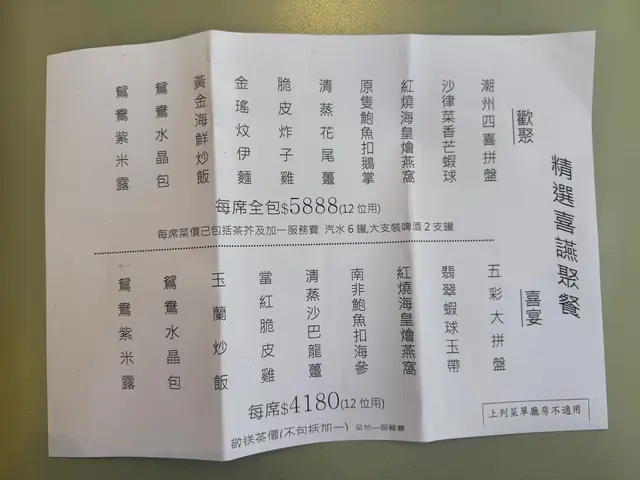 精選喜讌聚餐
歡聚
潮州四喜拼盤
沙律菜香芒蝦球
紅燒海皇燴燕窩
原隻鮑魚扣鵝掌
清蒸花尾躉
脆皮炸子雞
金瑤炆伊麵
黃金海鮮炒飯
鴛鴦水晶包
鴛鴦紫米露
每席全包$5888(12位用)
每席菜價已包括茶芥及加一服務費 汽水6罐,大支裝啤酒2支罐
喜宴
五彩大拼盤
翡翠蝦球玉帶
紅燒海皇燴燕窩
南非鮑魚扣海參
清蒸沙巴龍躉
當紅脆皮雞
玉蘭炒飯
鴛鴦水晶包
鴛鴦紫米露
每席$4180(12位用)
敬送茶價(不包括加一)
上列菜單廳房不適用